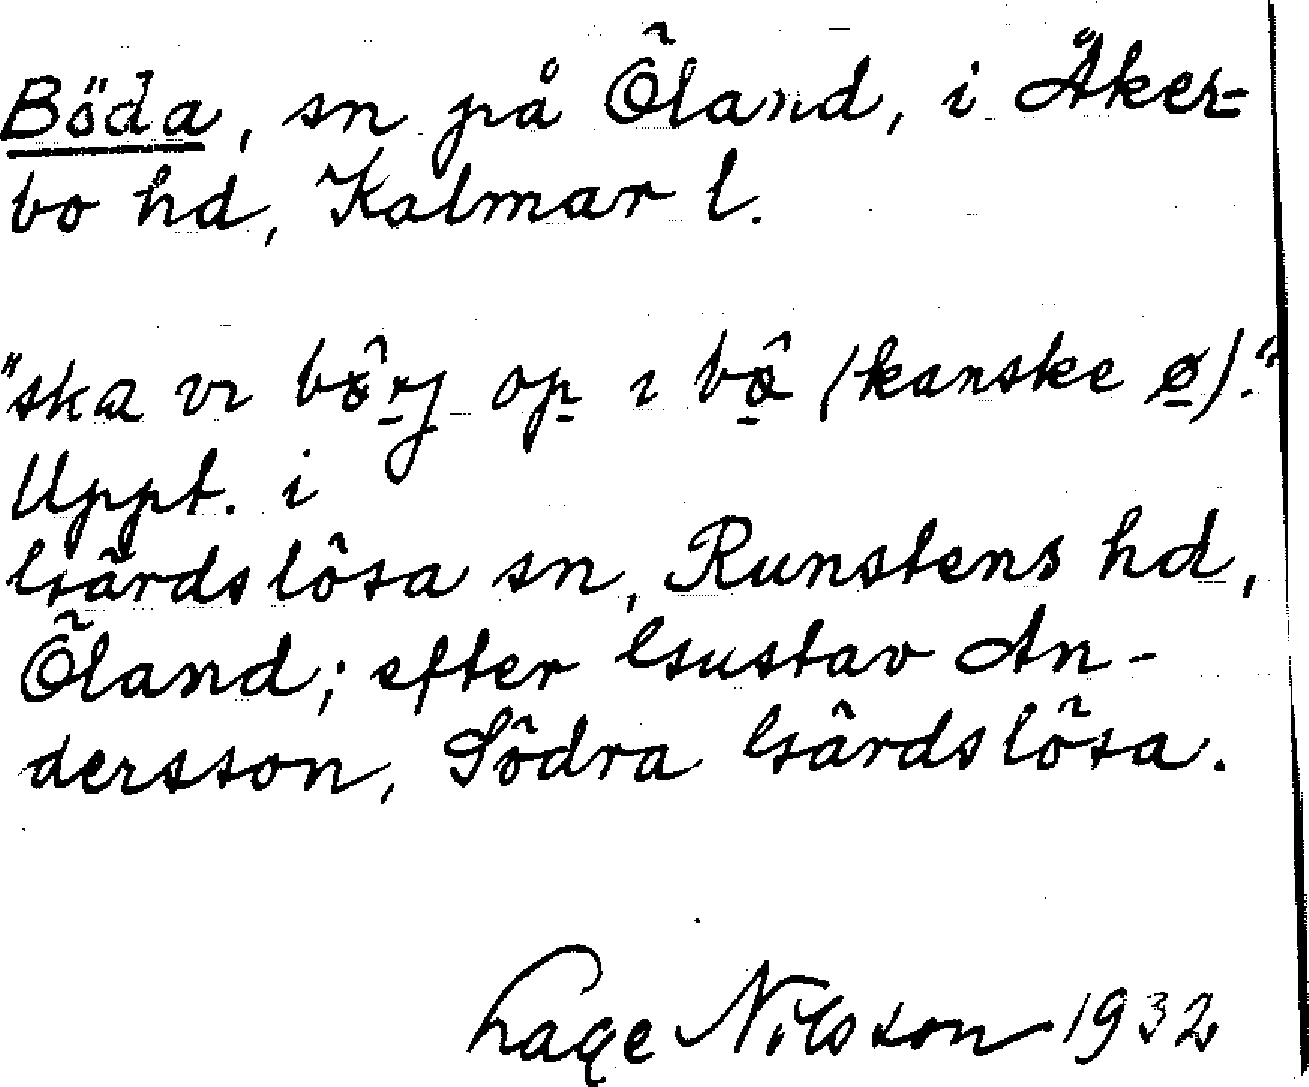 Böda, sn på Öland, i Åker-
bo hd, Kalmar l.
"ska vi bö̂rj op i bö̂ (kanske ø)."
Uppt. i
Gärdslösa sn, Runstens hd,
Öland; efter Gustav An-
dersson, Södra Gärdslösa.
Lage Nilsson 1932